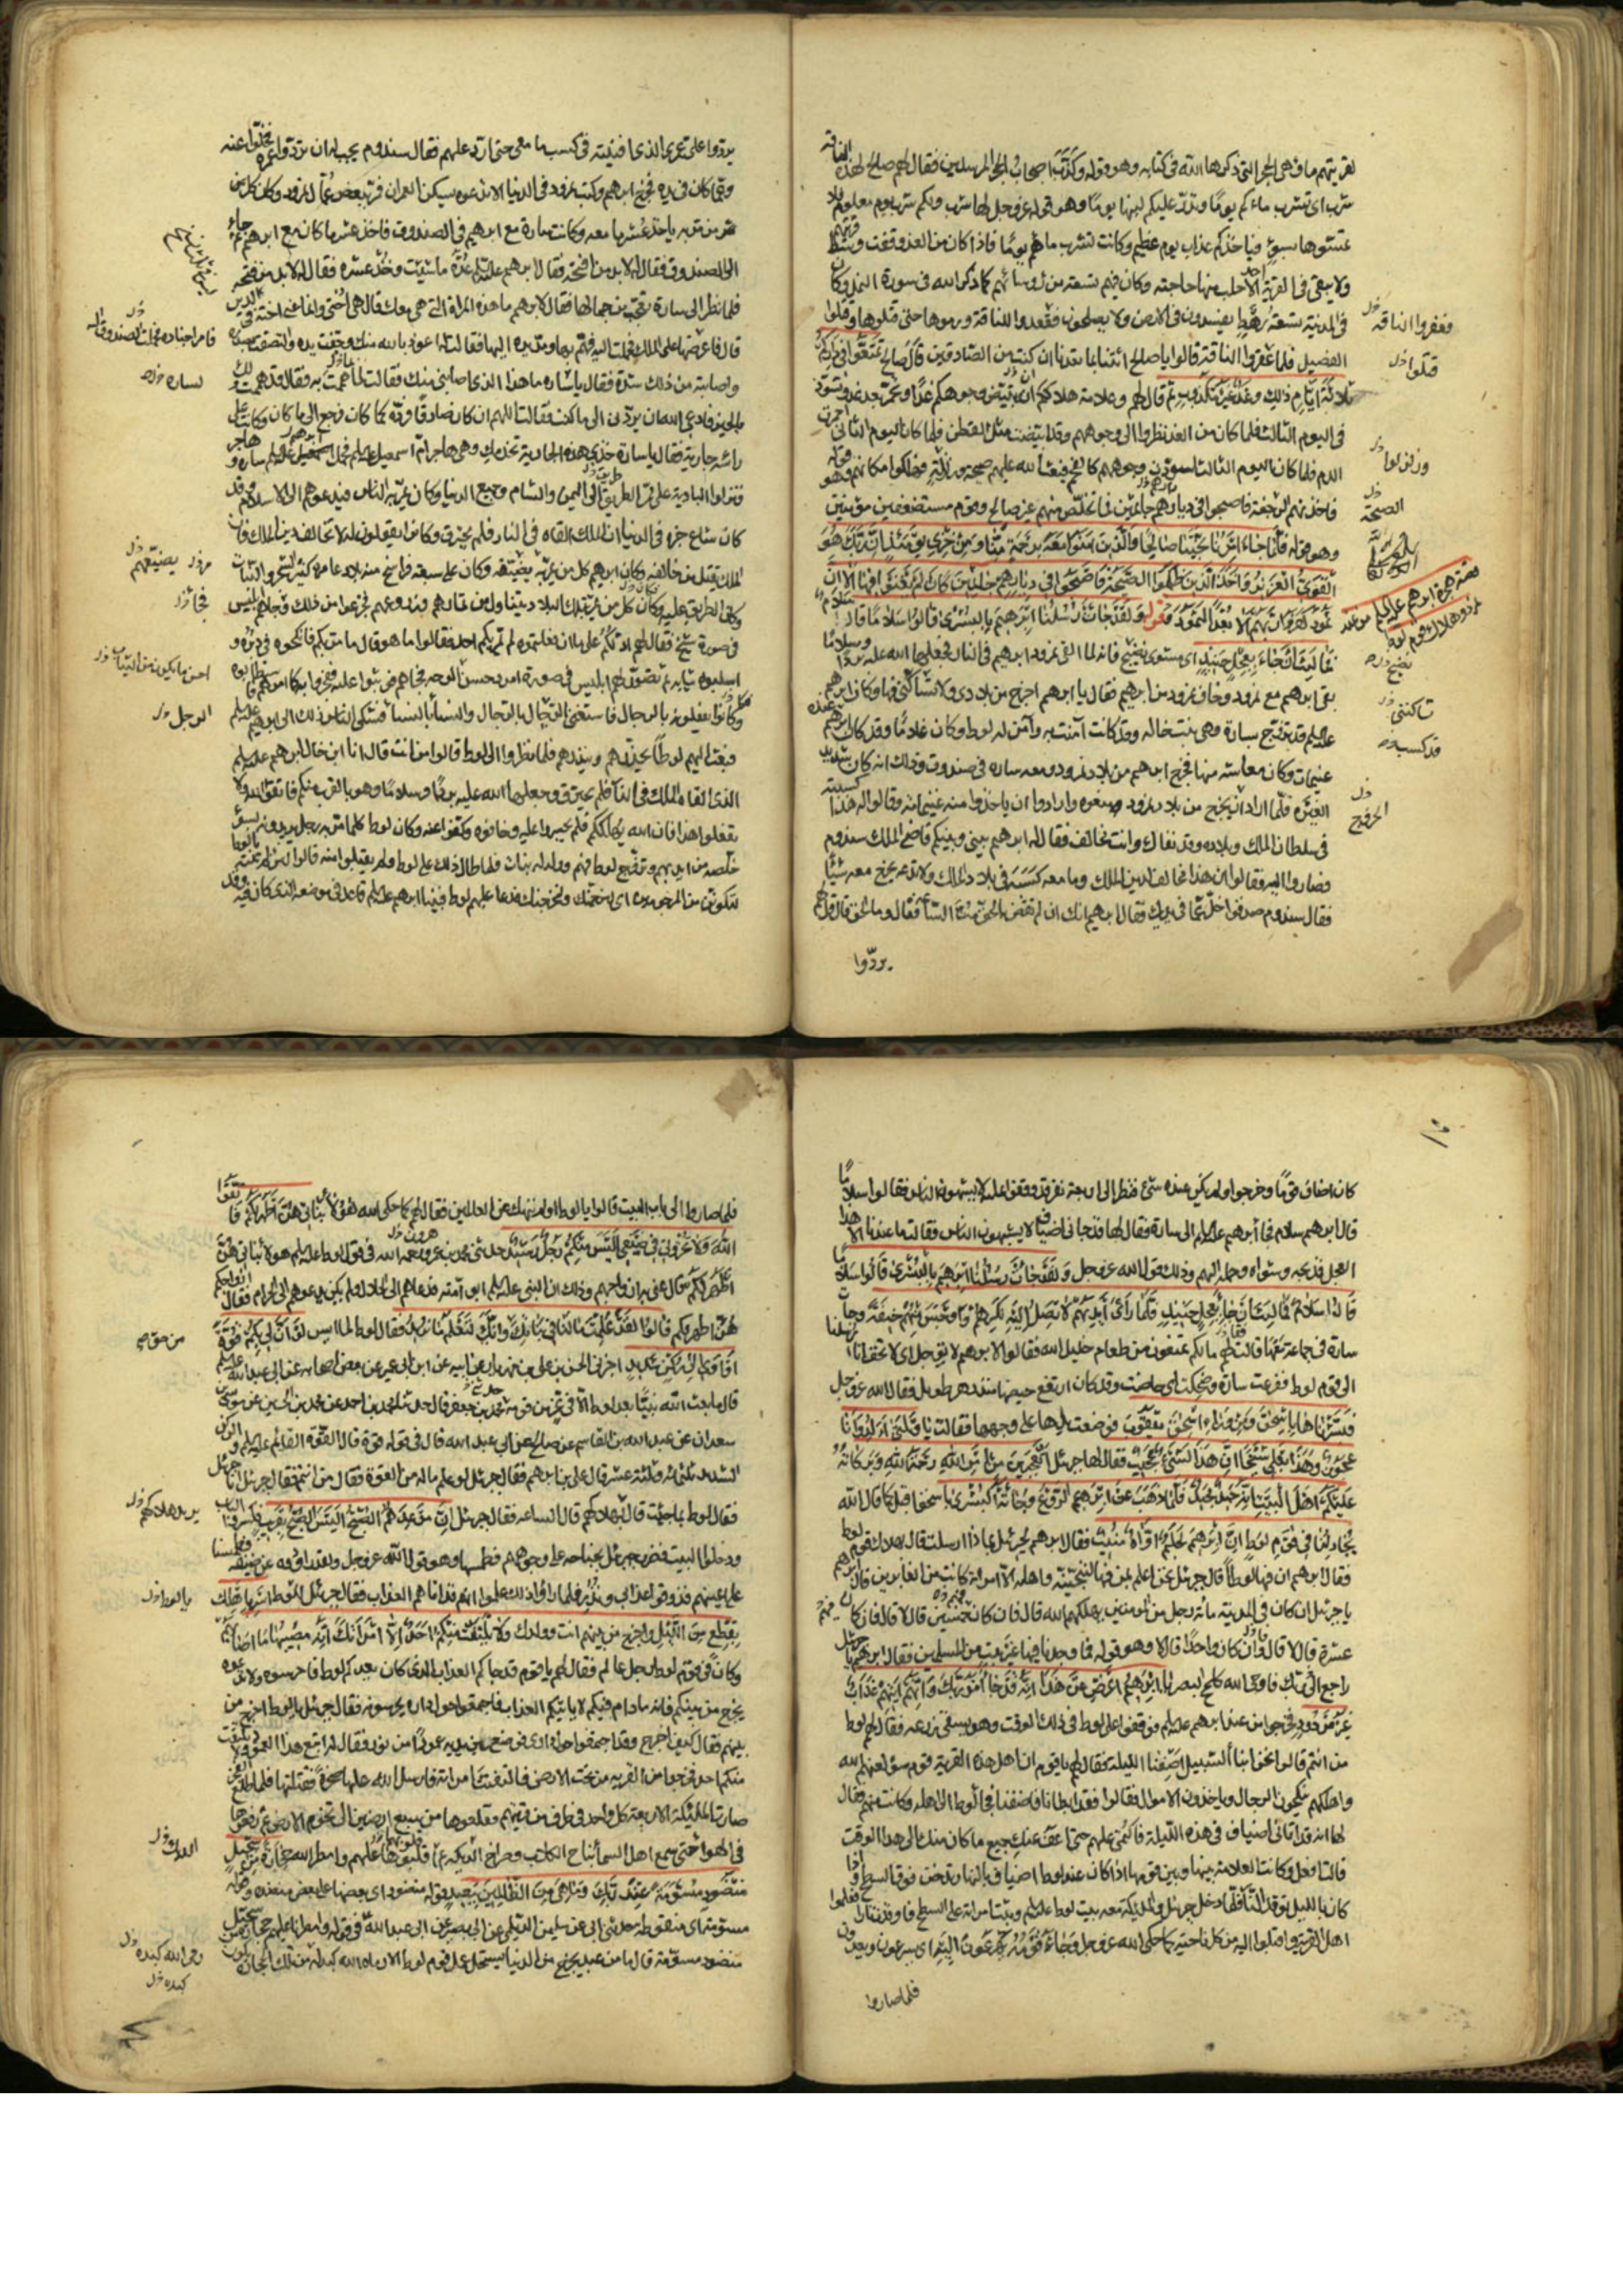 لقريتهم ماء وهى الحجر التى ذكرها الله فى كتابه وهو قوله وكذب اصحاب الحجر المرسلين فقال لهم صالح لهذه الناقة
شرب اى تشرب ماءكم يومًا وتدر لبنها عليكم يومًا وهو قوله عز وجل لها شرب ولكم شرب يوم معلوم ولا
تمسوها بسوء فياخذكم عذاب يوم عظيم وكانت تشرب ماءهم يومًا فاذا كان من الغد وقفت وسط قريتهم
ولا يبقى فى القرية احد الا حلب منها حاجته وكان فيهم تسعة من رؤسائهم كما ذكر الله فى سورة النمل وكان
فى المدينة تسعة رهط يفسدون فى الارض ولا يصلحون فعقدوا للناقة ورموها حتى قتلوها وقتلوا
الفصيل فلما عقروا الناقة قالوا يا صالح ائتنا بما تعدنا ان كنت من الصادقين قال صالح تمتعوا فى داركم
ثلاثة ايام ذلك وعد غير مكذوب ثم قال لهم وعلامة هلاككم انه تبيض وجوهكم غدًا وتحمر بعد غد وتسود
فى اليوم الثالث فلما كان من الغد نظروا الى وجوههم وقد ابيضت مثل القطن فلما كان اليوم الثانى احمرت مثل
الدم فلما كان اليوم الثالث اسودت وجوههم فبعث الله عليهم صيحة وزلزلة فهلكوا وهو قوله
فاخذتهم الرجفة فاصبحوا فى ديارهم جاثمين فما تخلص منهم غير صالح وقوم مستضعفين مؤمنين
وهو قوله فلما جاء امرنا نجينا صالحًا والذين آمنوا معه برحمة منا ومن خزى يومئذ ان ربك هو
القوى العزيز واخذ الذين ظلموا الصيحة فاصبحوا فى ديارهم جاثمين كان لم يغنوا فيها الا ان
ثمود كفروا ربهم الا بعدًا لثمود قوله ولقد جاءت رسلنا ابرهيم بالبشرى قالوا سلامًا قال سلام
فما لبث ان جاء بعجل حنيذ اى مشوى نضيج فانه لما القى نمرود ابرهيم فى النار فجعلها الله عليه بردًا وسلامًا
بقى ابرهيم مع نمرود وخاف نمرود من ابرهيم فقال يا ابرهيم اخرج من بلادى ولا تساكنى فيها وكان ابرهيم
عليه السلم قد تزوج بسارة وهى بنت خاله وقد كانت آمنت به وآمن له لوط وكان غلامًا وقد كان ابرهيم عنده
غنيمات وكان معاشه منها فخرج ابرهيم من بلاد نمرود ومعه سارة فى صندوق وذلك انه كان شديد
الغيرة فلما اراد ان يخرج من بلاد نمرود منعوه وارادوا ان ياخذوا منه غنيماته وقالوا له هذا كسبته
فى سلطان الملك وبلاده وانت مخالف فقال لهم ابرهيم بينى وبينكم قاضى الملك سندوم
فصاروا اليه فقالوا ان هذا مخالف لدين الملك وما معه كسبه فى بلاد الملك ولا ندعه يخرج معه شيئًا
فقال سندوم صدقوا خل عما فى يديك فقال ابرهيم انك ان لم تقض بالحق مت الساعة فقال وما الحق قال قل لهم
يردوا
فعقروا الناقة
قتلوا
وزلزلوا
الصيحة
قصة هجرة ابرهيم عليه السلم من بلاد
نمرود وهلاك قوم لوط
نضيج
تساكننى
قد كسبه
الخروج
يردوا على عمرى الذى افنيته فى كسب ما معى حتى ارد عليهم فقال سندوم يجب ان تردوا عمره فخلوا عنه
وعما كان فى يده فخرج ابرهيم وكتب نمرود فى الدنيا الا تدعوه يسكن العمران فمر ببعض عمال نمرود وكان كل من
مر به ياخذ عشر ما معه وكانت سارة مع ابرهيم فى الصندوق فاخذ عشر ما كان مع ابرهيم ثم جاء
الى الصندوق فقال له لا بد من افتحه فقال ابرهيم عليه السلم عده ما شئت وخذ عشره فقال لا بد من فتحه
فلما نظر الى سارة تعجب من جمالها فقال لابرهيم ما هذه المراة التى هى معك قال هى اختى وانما عنى اخته فى الدين
واصابته من ذلك شدة فقال يا سارة ما هذا الذى اصابنى منك فقالت لما هممت به فقال قد هممت لك
بالخير فادعى الله ان يردنى الى ما كنت فقالت اللهم ان كان صادقًا فرده كما كان فرجع الى ما كان وكانت على
راسه جارية فقال يا سارة خذى هذه الجارية تخدمك وهى هاجر ام اسمعيل عليه السلم فحمل ابرهيم سارة وهاجر
فنزلوا البادية على ممر طريق اليمن والشام وجميع الدنيا وكان يمر به الناس فيدعوهم الى الاسلام وقد
كان شاع خبره فى الدنيا ان الملك القاه فى النار فلم يحترق وكانوا يقولون له لا تخالف دين الملك فان
الملك يقتل من خالفه وكان ابرهيم كل من مر به يضيفه وكان على سبعة فراسخ منه بلاد عامرة كثيرة الشجر والنبات
فى صورة شيخ فقال لهم ادلكم على ما ان فعلتموه لم يمر بكم احد فقالوا ما هو قال من مر بكم فانكحوه فى دبره و
اسلبوه ثيابه ثم تصور لهم ابليس فى صورة امرد حسن الوجه فجاءهم فوثبوا عليه ففجروا به كما امرهم
وكانوا يفعلونه بالرجال فاستغنى الرجال بالرجال والنساء بالنساء فشكى الناس ذلك الى ابرهيم عليه السلم
فبعث اليهم لوطًا يحذرهم وينذرهم فلما نظروا الى لوط قالوا من انت قال انا ابن خال ابرهيم عليه السلم
الذى القاه الملك فى النار فلم يحترق وجعلها الله عليه بردًا وسلامًا وهو بالقرب منكم فاتقوا الله ولا
تفعلوا هذا فان الله يهلككم فلم يجسروا عليه وخافوه وكفوا عنه وكان لوط كلما مر به رجل يريدونه بسوء
خلصه من ايديهم وتزوج لوط فيهم وولد له بنات فلما طال ذلك على لوط ولم يقبلوا منه قالوا لئن لم تنته يا لوط
لتكونن من المرجومين اى لنرجمنك ولنخرجنك فدعا عليهم لوط فبينا ابرهيم عليه السلم قاعد فى موضعه الذى كان فيه وقد
لسارة
احسن ما يكون من الثياب
الرجل
كان اضاف قومًا وخرجوا ولم يكن عنده شئ فنظر الى اربعة نفر قد وقفوا عليه لا يشبهون الناس فقالوا سلامًا
قال ابرهيم سلام فجاء ابرهيم عليه السلم الى سارة فقال لها قد جاءنى اضياف لا يشبهون الناس فقالت ما عندنا الا هذا
العجل فذبحه وشواه وحمله اليهم وذلك قول الله عز وجل ولقد جاءت رسلنا ابرهيم بالبشرى قالوا سلامًا
قال سلام فما لبث ان جاء بعجل حنيذ فلما راى ايديهم لا تصل اليه نكرهم واوجس منهم خيفة وجاءت
سارة فى جماعة معها فقالت لهم ما لكم تمتنعون من طعام خليل الله فقالوا لابرهيم لا توجل اى لا تخف انا ارسلنا
الى قوم لوط ففزعت سارة وضحكت اى حاضت وقد كان ارتفع حيضها منذ دهر طويل فقال الله عز وجل
فبشرناها باسحق ومن وراء اسحق يعقوب فوضعت يدها على وجهها فقالت يا ويلتى ءالد وانا
عجوز وهذا بعلى شيخا ان هذا لشئ عجيب فقال لها جبرئيل اتعجبين من امر الله رحمة الله وبركاته
عليكم اهل البيت انه حميد مجيد فلما ذهب عن ابرهيم الروع وجاءته البشرى باسحق اقبل كما قال الله
يجادلنا فى قوم لوط ان ابرهيم لحليم اواه منيب فقال ابرهيم لجبرئيل بماذا ارسلت قال بهلاك قوم لوط
فقال ابرهيم ان فيها لوطًا قال جبرئيل نحن اعلم بمن فيها لننجينه واهله الا امراته كانت من الغابرين قال ابرهيم
يا جبرئيل ان كان فى المدينة مائة رجل من المؤمنين يهلكهم الله قال لا قال فان كان خمسين قال لا قال فان كان فيهم
عشرة قال لا قال وان كان واحدًا قال لا وهو قوله فما وجدنا فيها غير بيت من المسلمين فقال ابرهيم يا جبرئيل
راجع ربك فاوحى الله كلمح البصر يا ابرهيم اعرض عن هذا انه قد جاء امر ربك وانهم آتيهم عذاب
غير مردود فخرجوا من عند ابرهيم عليه السلم فوقفوا على لوط فى ذلك الوقت وهو يسقى زرعه فقال لهم لوط
من انتم قالوا نحن ابناء السبيل اضفنا الليلة فقال لهم يا قوم ان اهل هذه القرية قوم سوء لعنهم الله
واهلكهم ينكحون الرجال وياخذون الاموال فقالوا فقد ابطانا فاضفنا فجاء لوط الى اهله وكانت منهم فقال
لها انه قد اتانى اضياف فى هذه الليلة فاكتمى عليهم حتى اعفو عنك جميع ما كان منك الى هذا الوقت
قالت افعل وكانت العلامة بينها وبين قومها اذا كان عند لوط اضياف بالنهار تدخن فوق السطح واذا
كان بالليل توقد النار فلما دخل جبرئيل والملئكة معه بيت لوط عليه السلم وثبت امراته على السطح فاوقدت نارا فعلموا
اهل القرية واقبلوا اليه من كل ناحية كما حكى الله عز وجل وجاءه قومه يهرعون اليه اى يسرعون ويعدون
فلما صاروا
فلما صاروا الى باب البيت قالوا يا لوط اولم ننهك عن العالمين فقال لهم كما حكى الله هؤلاء بناتى هن اطهر لكم فاتقوا
الله ولا تخزون فى ضيفى اليس منكم رجل رشيد حدثنى محمد بن عمرو رحمه الله فى قول لوط عليه السلم هؤلاء بناتى هن
اطهر لكم قال عنى به ازواجهم وذلك ان النبى عليه السلم ابو امته فدعاهم الى الحلال ولم يكن يدعوهم الى الحرام فقال ازواجكم
هن اطهر لكم قالوا لقد علمت ما لنا فى بناتك من حق وانك لتعلم ما نريد فقال لوط لما ايس لو ان لى بكم قوة
او آوى الى ركن شديد اخبرنى الحسن بن على بن مهزيار عن ابيه عن ابن ابى عمير عن بعض اصحابه عن ابى عبد الله عليه السلم
قال ما بعث الله نبيًا بعد لوط الا فى عز من قومه حدثنا محمد بن جعفر قال حدثنا محمد بن احمد عن محمد بن الحسين عن موسى بن
سعدان عن عبد الله بن القاسم عن صالح عن ابى عبد الله قال فى قوله قوة قال القوة القائم عليه السلم والركن
الشديد ثلثمائة وثلثة عشر قال على بن ابرهيم فقال جبرئيل لو علم ما له من القوة فقال من انتم فقال جبرئيل انا جبرئيل
فقال لوط بماذا جئت قال بهلاكهم قال الساعة فقال جبرئيل ان موعدهم الصبح اليس الصبح بقريب فكسروا الباب
ودخلوا البيت فضرب جبرئيل بجناحه على وجوههم فطمسها وهو قول الله عز وجل ولقد راودوه عن ضيفه فطمسنا
اعينهم فذوقوا عذابى ونذر فلما راوا ذلك علموا انهم قد اتاهم العذاب فقال جبرئيل للوط اسر باهلك
بقطع من الليل واخرج من بينهم انت وولدك ولا يلتفت منكم احد الا امراتك انه مصيبها ما اصابهم
وكان فى قوم لوط رجل عالم فقال لهم يا قوم قد جاءكم العذاب الذى كان يعدكم لوط فاحرسوه ولا تدعوه
يخرج من بينكم فانه ما دام فيكم لا ياتيكم العذاب فاجتمعوا حول داره يحرسونه فقال جبرئيل يا لوط اخرج من
بينهم فقال كيف اخرج وقد اجتمعوا حول دارى فوضع بين يديه عمودًا من نور فقال له اتبع هذا العمود ولا يلتفت
منكم احد فخرجوا من القرية من تحت الارض فالتفتت امراته فارسل الله عليها صخرة فقتلتها فلما طلع الفجر
صارت الملئكة الاربعة كل واحد فى طرف من قريتهم فقلعوها من سبع ارضين الى تخوم الارض ثم رفعوها
فى الهواء حتى سمع اهل السماء نباح الكلاب وصراخ الديكة ثم قلبوها عليهم وامطرهم الله حجارة من سجيل
منضود مسومة عند ربك وما هى من الظالمين ببعيد قوله منضود اى بعضها على بعض منضدة وقوله
مسومة اى منقوطة حدثنى ابى عن سليمن الديلمى عن ابى بصير عن ابى عبد الله فى قوله وامطرنا عليهم حجارة من سجيل
منضود مسومة قال ما من عبد يخرج من الدنيا يستحل عمل قوم لوط الا رماه الله كبده من تلك الحجارة
من حق
يريد هلاكهم
يا لوط
الديوك
رمى الله كبده
كبده